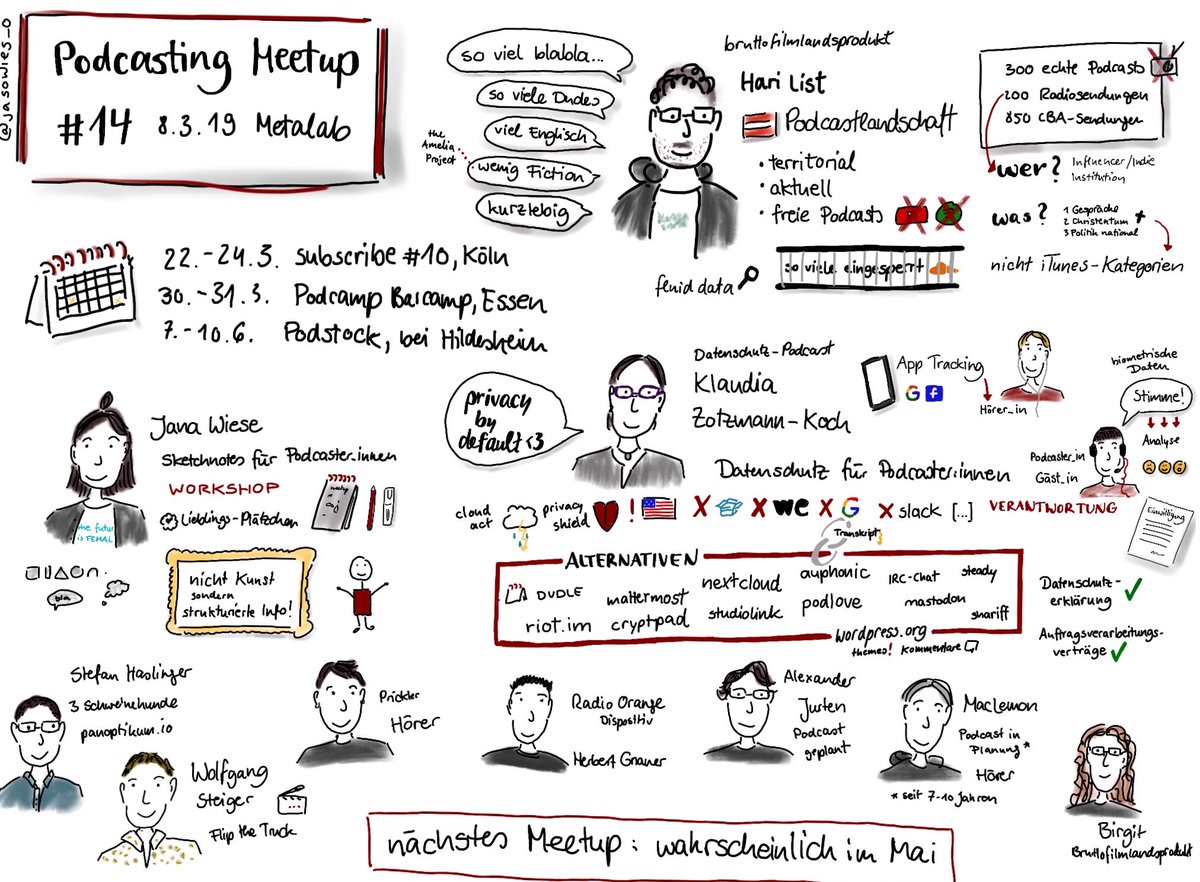 @jasowies_o
Podcasting Meetup
#14 8.3.19 Metalab
so viel blabla...
so viele Dudes
viel Englisch
the
Amelia
Project
wenig Fiction
kurzlebig
bruttofilmlandsprodukt
Hari List
Podcastlandschaft
• territorial
• aktuell
• freie Podcasts
fyyd data
so viele eingesperrt
300 echte Podcasts
200 Radiosendungen
850 CBA-Sendungen
wer?
Influencer/Indie
Institution
was?
1 Gespräche
2 Christentum
3 Politik national
nicht iTunes-Kategorien
22.-24.3. subscribe #10, Köln
30.-31.3. Podcamp Barcamp, Essen
7.-10.6. Podstock, bei Hildesheim
Jana Wiese
Sketchnotes für Podcaster:innen
WORKSHOP
Lieblings-Plätzchen
the future
is FEMAL
bla
nicht Kunst
sondern
strukturierte Info!
privacy
by
default <3
Datenschutz-Podcast
Klaudia
Zotzmann-Koch
Datenschutz für Podcaster:innen
App Tracking
G f
Hörer_in
biometrische
Daten
Stimme!
Analyse
Podcaster_in
Gäst_in
cloud
act
privacy
shield
!
X X we X G X slack [...]
VERANTWORTUNG
Einwilligung
Transkript
ALTERNATIVEN
DUDLE
riot.im
mattermost
cryptpad
nextcloud
studiolink
auphonic
podlove
IRC-Chat
mastodon
steady
shariff
wordpress.org
themes! Kommentare
Datenschutz-
erklärung
Auftragsverarbeitungs-
verträge
Stefan Haslinger
3 Schweinehunde
panoptikum.io
Wolfgang
Steiger
Flip the Truck
Prickler
Hörer
Radio Orange
Dispositiv
Herbert Gnauer
Alexander
Jurten
Podcast
geplant
MacLemon
Podcast in
Planung*
Hörer
* seit 7-10 Jahren
Birgit
Bruttofilmlandsprodukt
nächstes Meetup: wahrscheinlich im Mai